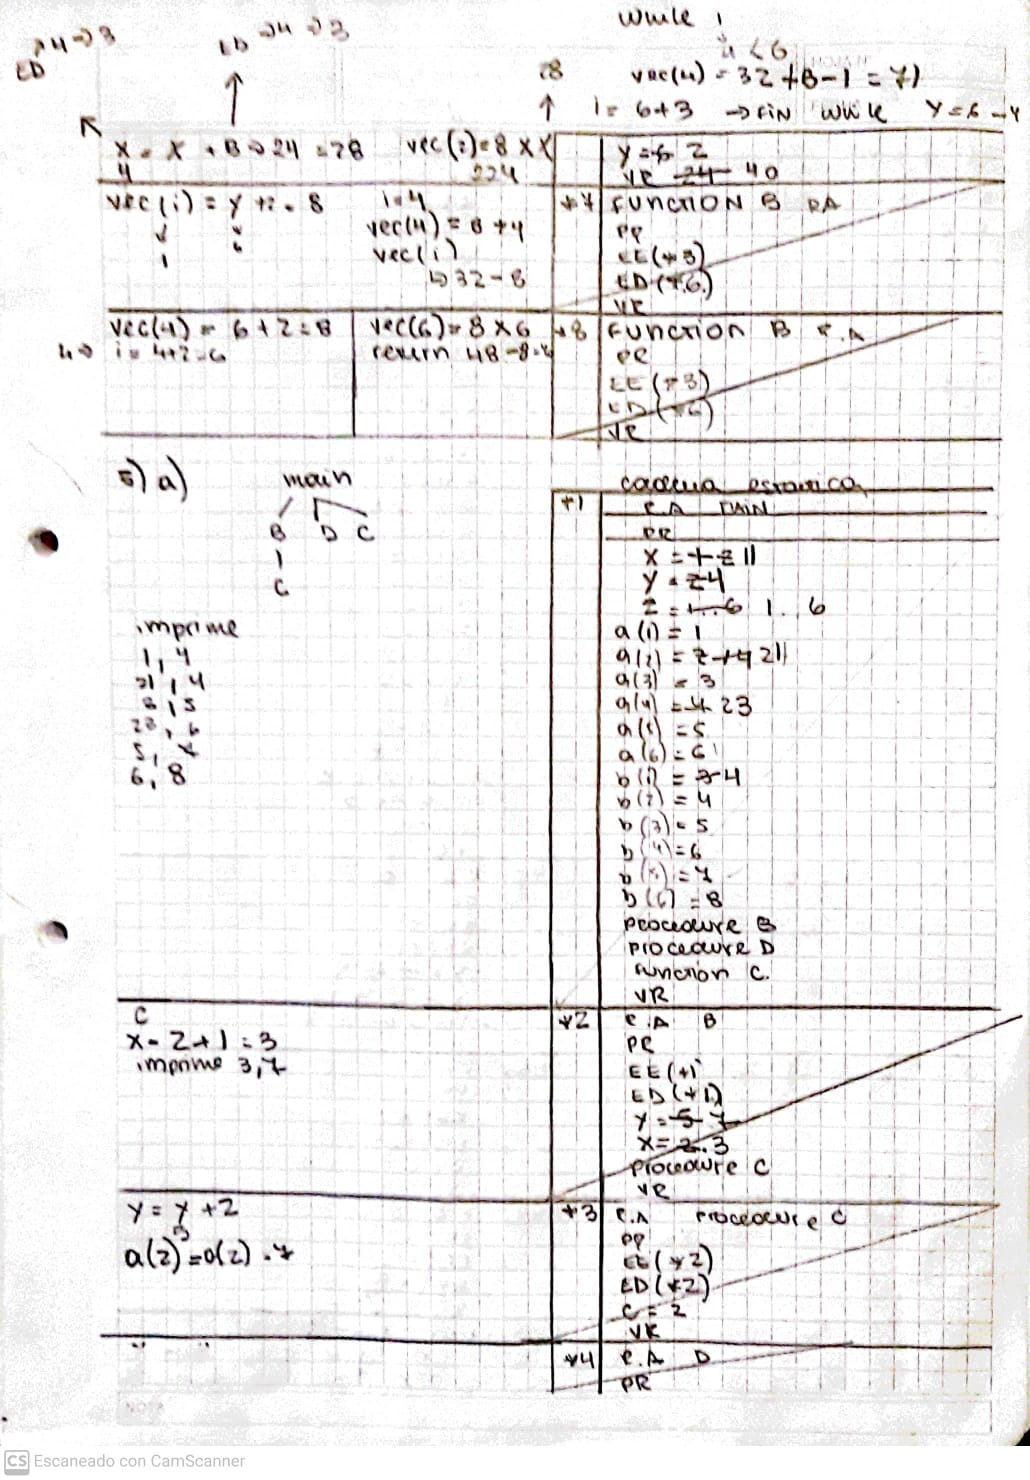 while i
4 < 6
vec(4) = 32 + 8 - 1 =
i = 6+3 → FIN while Y = 6 - 4
ED *4 → 3
ED → 4 → 3
28
X = X + B → 24 = 28
4
vec(i) = 8 x X
224
Y = 6 2
VR 24 40
vec(i) = Y + 2 . 8
i = 4
vec(4) = 8 + 4
vec(i)
↳ 32 - 8
*7 FUNCTION B RA
PR
EE (*3)
ED (*6)
VR
vec(4) = 6 + 2 = 8
i = 4+2 = 6
vec(6) = 8 x 6
return 48 - 8 =
*8 FUNCTION B R.A
PR
EE (*3)
ED (*6)
VR
5) a)
main
B D C
C
imprime
1, 4
21, 4
3, 5
23, 6
5, 7
6, 8
cadena estatica
*1 R.A MAIN
PR
X = 1 2 11
Y = 2 4
Z = 1..6 1..6
a(1) = 1
a(2) = 2 14 21
a(3) = 3
a(4) = 4 23
a(5) = 5
a(6) = 6
b(1) = 3 4
b(2) = 4
b(3) = 5
b(4) = 6
b(5) = 7
b(6) = 8
procedure B
procedure D
function C.
VR
C
X = 2 + 1 = 3
imprime 3,7
*2 R.A B
PR
EE (*1
ED (*1)
Y = 5 7
X = 2 3
procedure C
VR
Y = Y + 2
a(2) = a(2) . 7
*3 R.A Procedure C
PR
EE (*2)
ED (*2)
C = 2
VR
*4 R.A D
PR
CS Escaneado con CamScanner